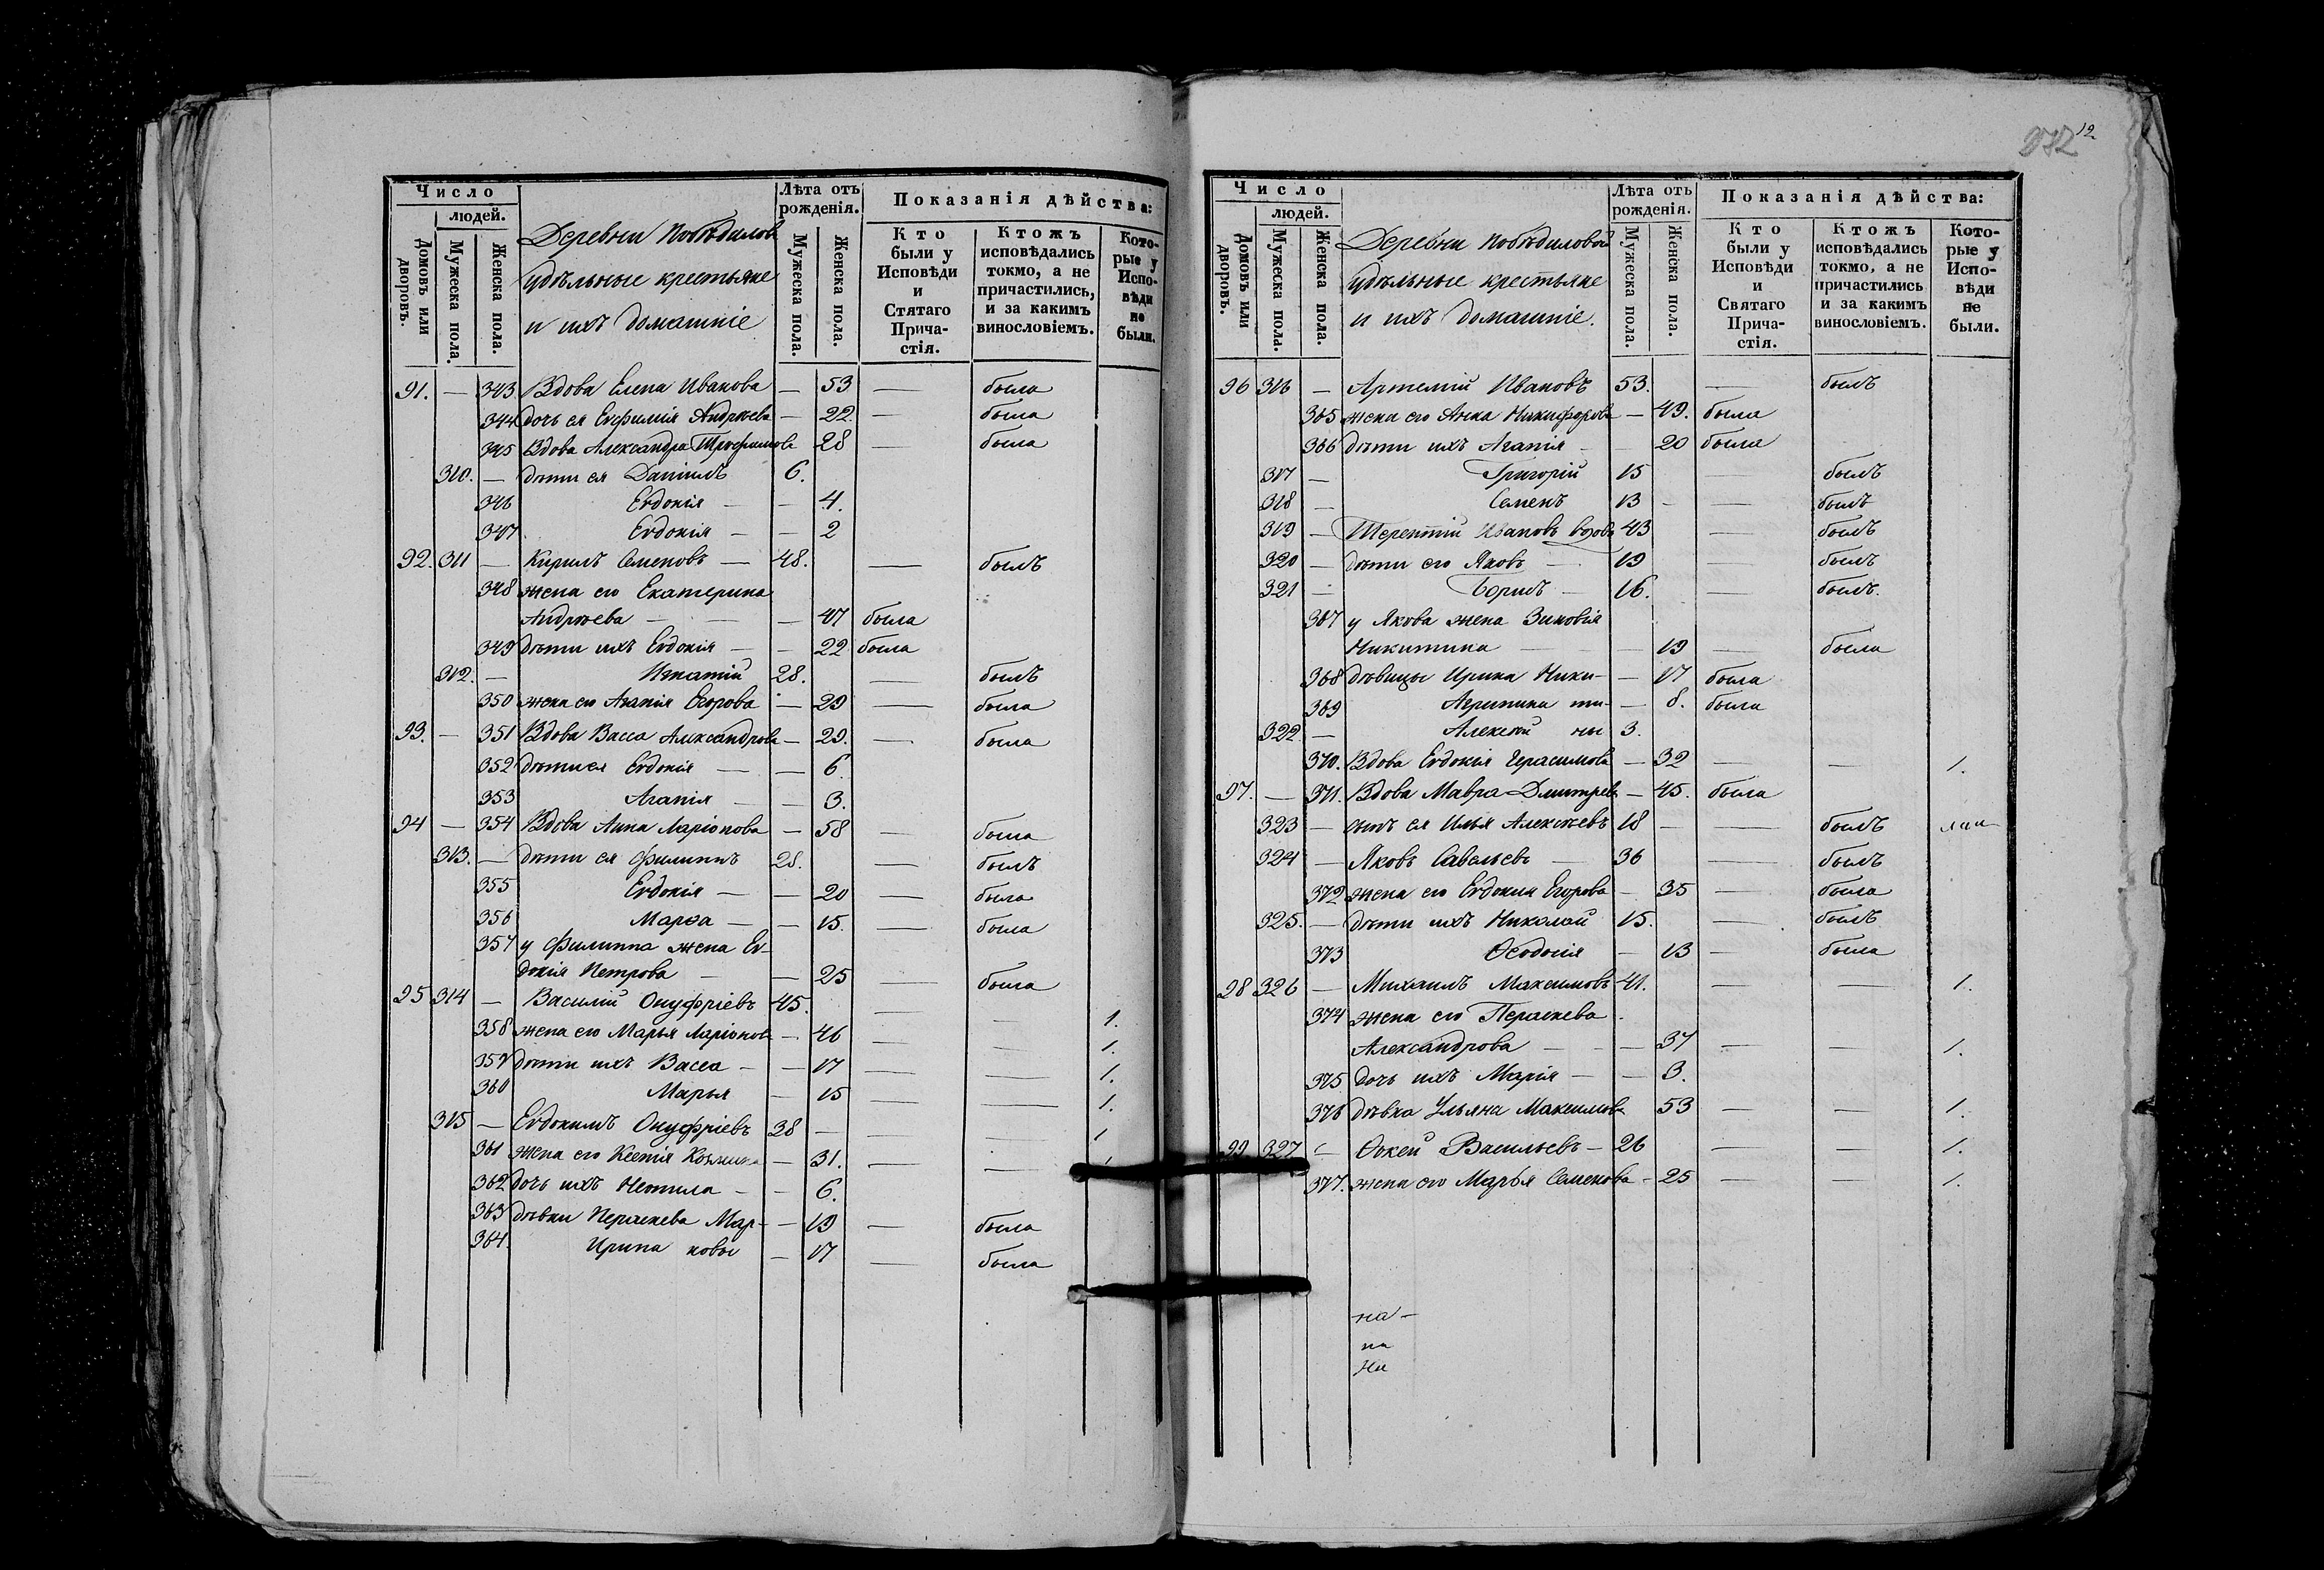 Число
людей.
Домовъ или дворовъ.
Мужеска пола.
Женска пола.
Деревни Побѣдилова
удѣльные крестьяне
и ихъ домашніе
Лѣта отъ рожденія.
Мужеска пола.
Женска пола.
Показанія дѣйства:
Кто были у Исповѣди и Стятаго Прича-стія.
Ктожъ исповѣдались токмо, а не причастились, и за какимъ винословіемъ.
Кото-рые у Испо-вѣди не были.
91. — 343 Вдова Елена Иванова — 53 — была
344 дочь ея Евфимія Андреева — 22 — была
345 Вдова Александра Трофимова 28 — была
310. — дѣти ея Даніилъ 6.
346 Евдокія — — 4.
347 Евдокія — — 2
92. 311 — Кирилъ Семеновъ — 48. — былъ
348 жена его Екатерина
Андреева — — — 47 была
349 дѣти ихъ Евдокія — — 22 была
312. — Игнатій 28. — былъ
350 жена его Агапія Егорова — 29 — была
93. — 351 Вдова Васса Александрова — 29. — была
352 дѣти ея Евдокія — — 6.
353 Агапія — — 3.
94 — 354 Вдова Анна Ларіонова — 58 — была
313. — дѣти ея Филиппъ 28. — былъ
355 Евдокія — — 20 — была
356 Марѳа — — 15. — была
357 у Филиппа жена Ев-
докія Петрова — — 25 — была
95 314 — Василій Онуфріевъ 45. — — 1.
358 жена его Марья Ларіонова — 46 — — 1.
359 дѣти ихъ Васса — — 17 — — 1.
360 Марья — 15 — — 1.
315 — Евдокимъ Онуфріевъ 38 — — — 1
361 жена его Ксенія Козмина — 31. — —
362 дочь ихъ Неонила — — 6.
363 дѣвки Параскева Мар- — 19 — была
364. Ирина ковы — 17 — была
12
Число
людей.
Домовъ или дворовъ.
Мужеска пола.
Женска пола.
Деревни Побѣдиловой
удѣльные крестьяне
и ихъ домашніе.
Лѣта отъ рожденія.
Мужеска пола.
Женска пола.
Показанія дѣйства:
Кто были у Исповѣди и Святаго Прича-стія.
Ктожъ исповѣдались токмо, а не причастились и за какимъ винословіемъ.
Кото-рые у Испо-вѣди не были.
96 316 — Артемій Ивановъ 53. — былъ
365 жена его Анна Никифорова — 49. была
366 дѣти ихъ Агапія — — 20 была
317 — Григорій 15 — былъ
318 — Семенъ 13 — — былъ
319 — Терентій Ивановъ вдовъ 43 — былъ
320 — дѣти его Яковъ — 19 — былъ
321 — Борисъ — 16. — былъ.
367 у Якова жена Зиновія
Никитина — — 19 — была
368 дѣвицы Ирина Ники- — 17 была
369 Агрипина ти- — 8. была
322 — Алексѣй ны 3.
370. Вдова Евдокія Герасимова — 32 — — 1.
97. — 371. Вдова Мавра Дмитрева — 45. была
323 — сынъ ея Илья Алексѣевъ 18 — — былъ
324 — Яковъ Савельевъ — 36 — былъ
372 жена его Евдокія Егорова — 35 — была
325. — дѣти ихъ Николай 15. — былъ
373 Ѳеодосія — 13 — была
98 326 — Михаилъ Максимовъ 41. — — 1.
374 жена его Параскева
Александрова — — — 37 — — 1.
375 дочь ихъ Марія — — 3.
376 дѣвка Ульяна Максимова 53 — — 1.
99 327 — Васильевъ — 26 — — 1.
377. жена его Марья Семенова — 25 — — 1.
на —
на
ни